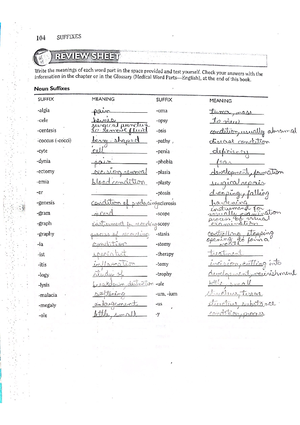 104 SUFFIXES
REVIEW SHEET
Write the meanings of each word part in the space provided and test yourself. Check your answers with the
information in the chapter or in the Glossary (Medical Word Parts—English), at the end of this book.
Noun Suffixes
SUFFIX MEANING SUFFIX MEANING
-algia pain -oma tumor, mass
-cele hernia -opsy to view
-centesis surgical puncture to remove fluid -osis condition, usually abnormal
-coccus (-cocci) -pathy disease condition
-cyte cell -penia deficiency
-dynia pain -phobia fear
-ectomy -plasia development, formation
-emia blood condition -plasty surgical repair
-er -ptosis drooping, falling
-genesis condition of -sclerosis hardening
-gram record -scope instrument for visually examination
-graph instrument for recording -scopy process of visual examination
-graphy process of recording -stasis controlling, stopping
-ia condition -stomy opening to form a
-ist specialist -therapy treatment
-itis inflammation -tomy incision, cutting into
-logy study of -trophy development, nourishment
-lysis -ule little, small
-malacia softening -um, -ium structure, tissue
-megaly enlargement -us structure, substance
-ole little, small -y condition, process